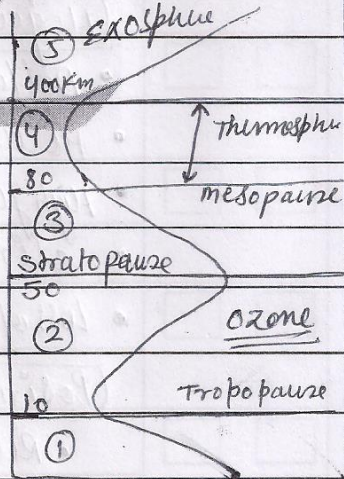 ⑤ Exosphere
400km
④ Thermosphe
80
mesopause
③
Stratopause
50
Ozone
②
Tropopause
10
①